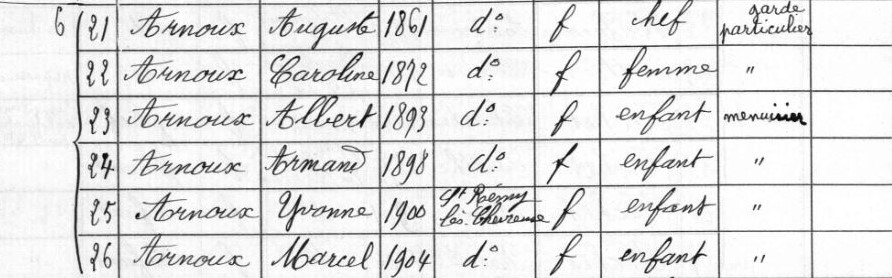 6 21 Arnoux Auguste 1861 do f chef garde particulier
22 Arnoux Caroline 1872 do f femme "
23 Arnoux Albert 1893 do f enfant menuisier
24 Arnoux Armand 1898 do f enfant "
25 Arnoux Yvonne 1900 St Rémy lès Chevreuse f enfant "
26 Arnoux Marcel 1904 do f enfant "